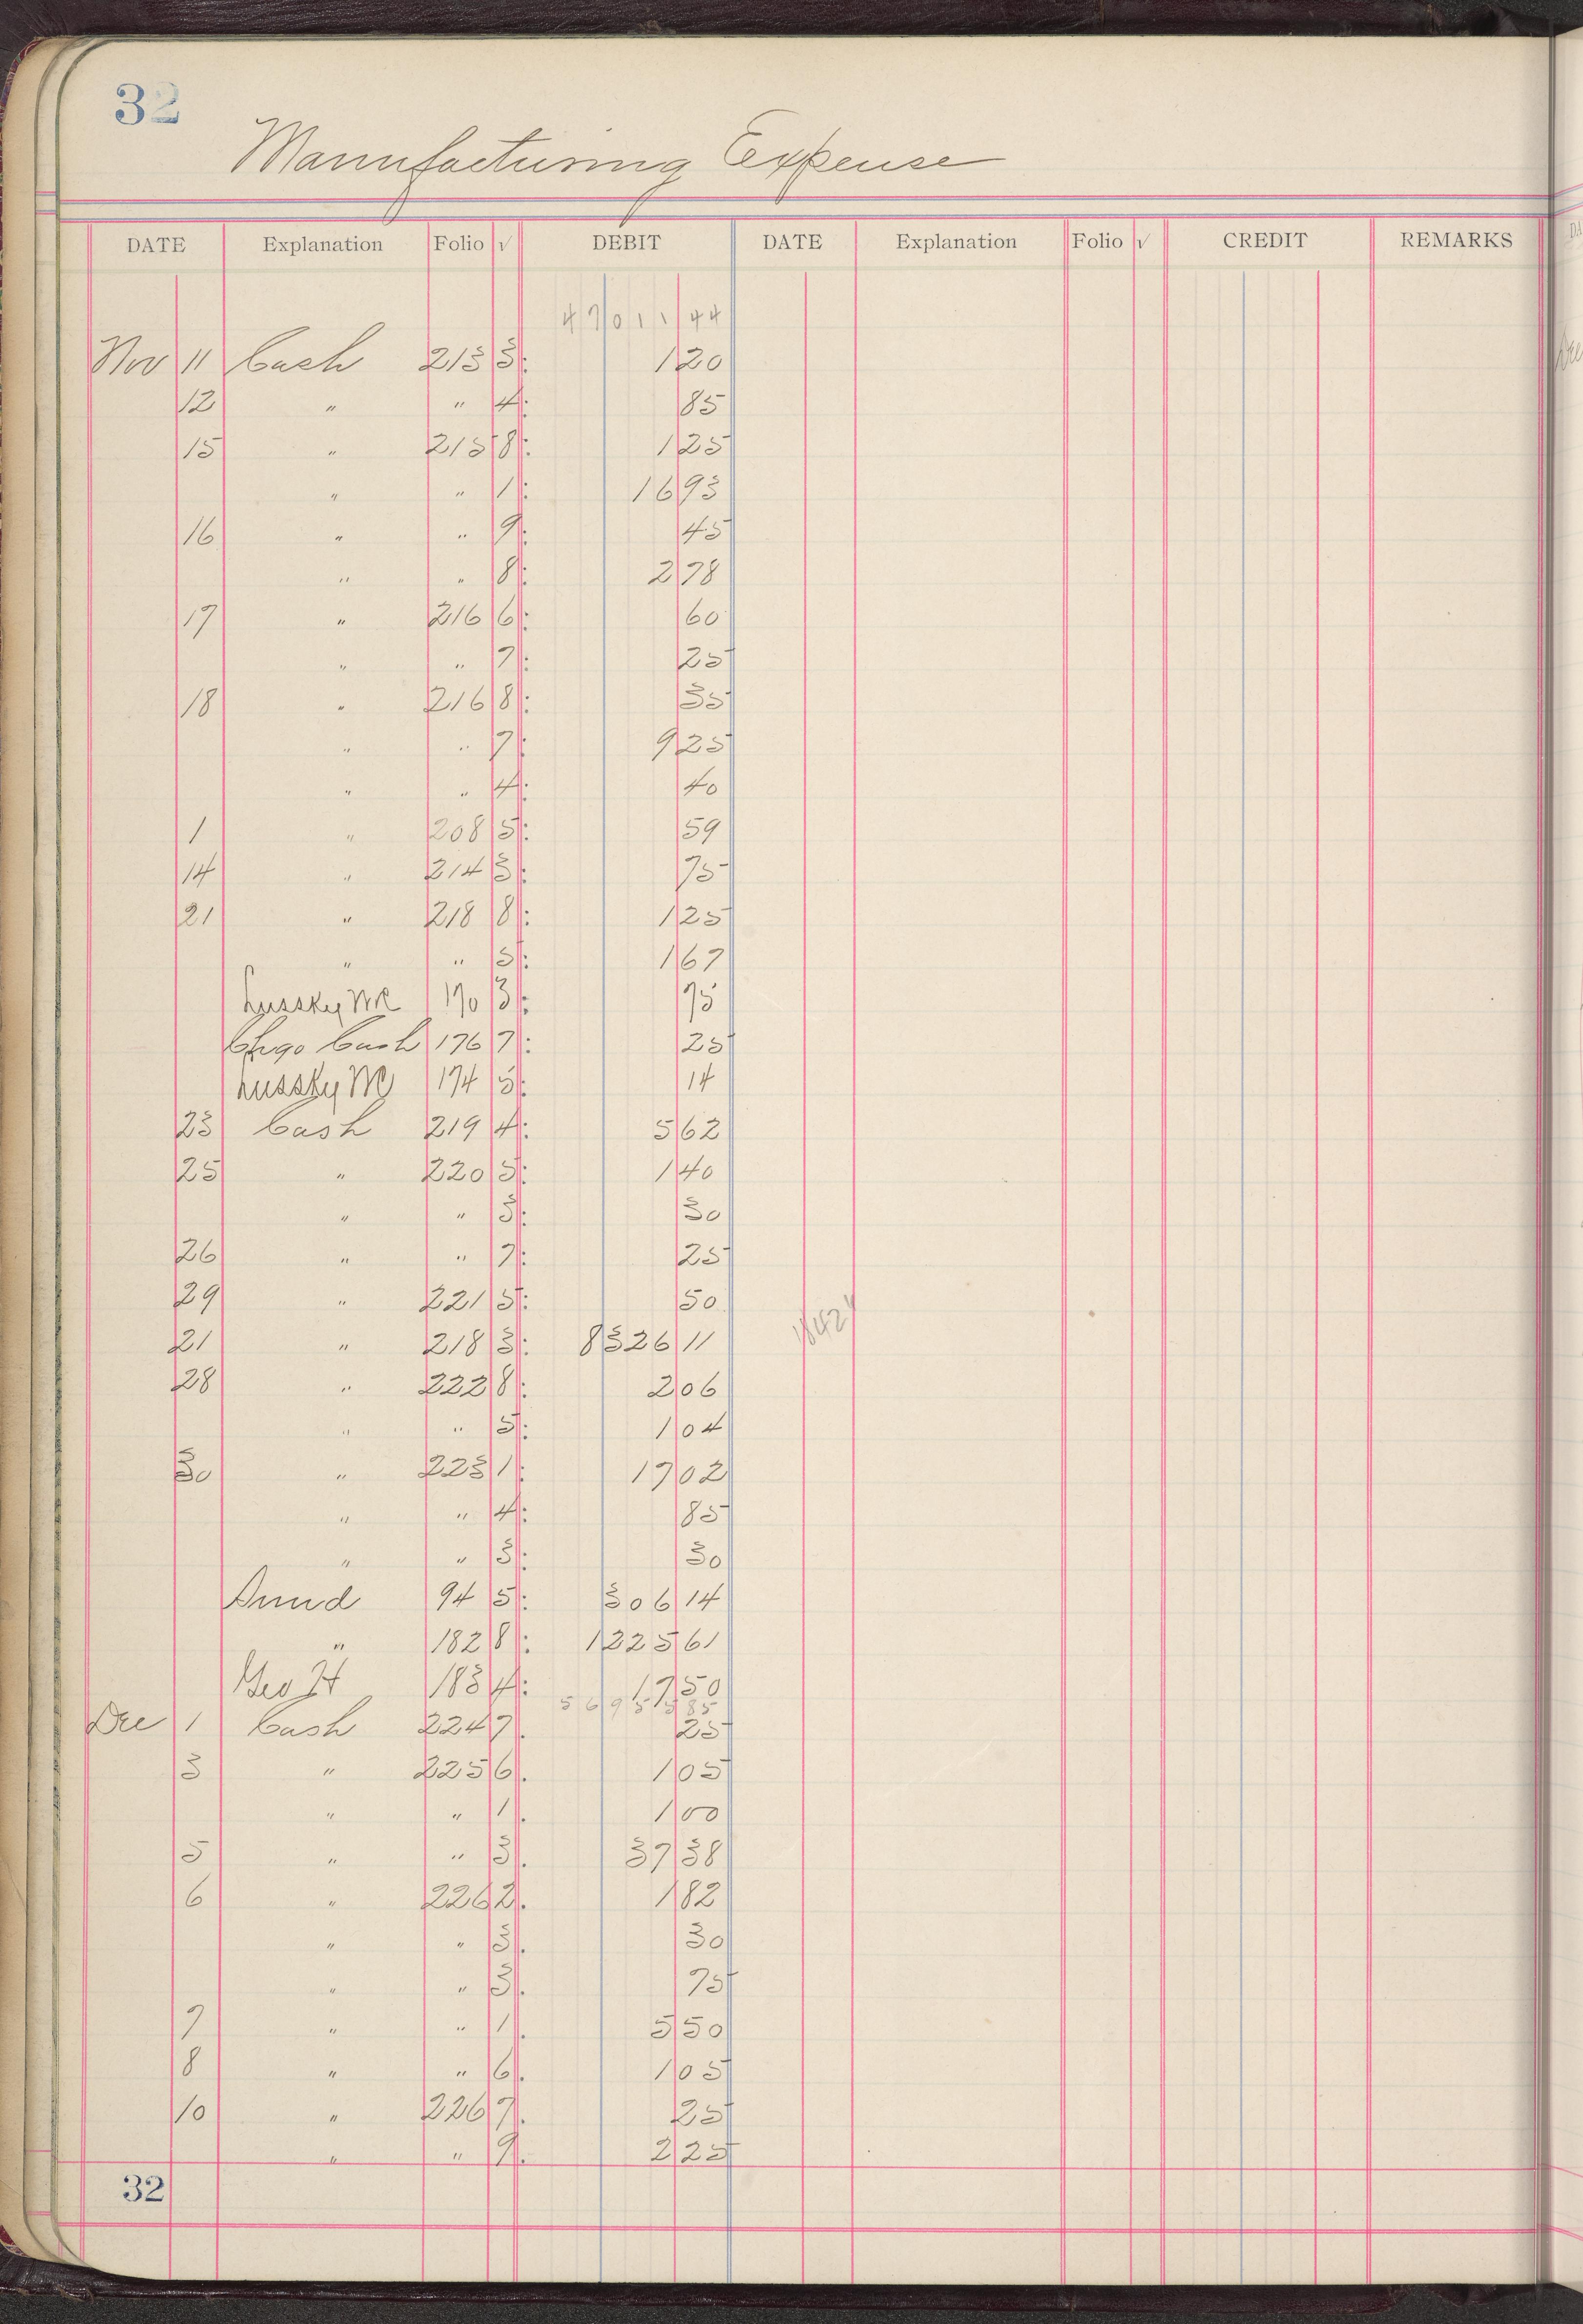 32
Manufacturing Expense
DATE Explanation Folio √ DEBIT DATE Explanation Folio √ CREDIT REMARKS
47011 44
Nov 11 Cash 213 3: 1 20
12 " " 4: 85
15 " 215 8: 1 25
" " 1: 16 93
16 " " 9: 45
" " 8: 2 78
17 " 216 6: 60
" " 7: 25
18 " 216 8: 35
" " 7: 9 25
" " 4: 40
1 " 208 5: 59
14 " 214 3: 75
21 " 218 8: 1 25
" " 5: 1 67
Lussky WC 170 3: 75
Chgo Cash 176 7: 25
Lussky WC 174 5: 14
23 Cash 219 4: 5 62
25 " 220 5: 1 40
" " 3: 30
26 " " 7: 25
29 " 221 5: 50
21 " 218 3: 8326 11
28 " 222 8: 2 06
" " 5: 1 04
30 " 223 1: 17 02
" " 4: 85
" " 3: 30
94 5: 306 14
" 182 8: 1225 61
Geo H 183 4: 17 50
56955 85
Dec 1 Cash 224 7. 25
3 " 225 6. 1 05
" " 1. 1 00
5 " " 3. 37 38
6 " 226 2. 1 82
" " 3. 30
" " 3. 75
7 " " 1. 5 50
8 " " 6. 1 05
10 " 226 7. 25
" " 9. 2 25
32